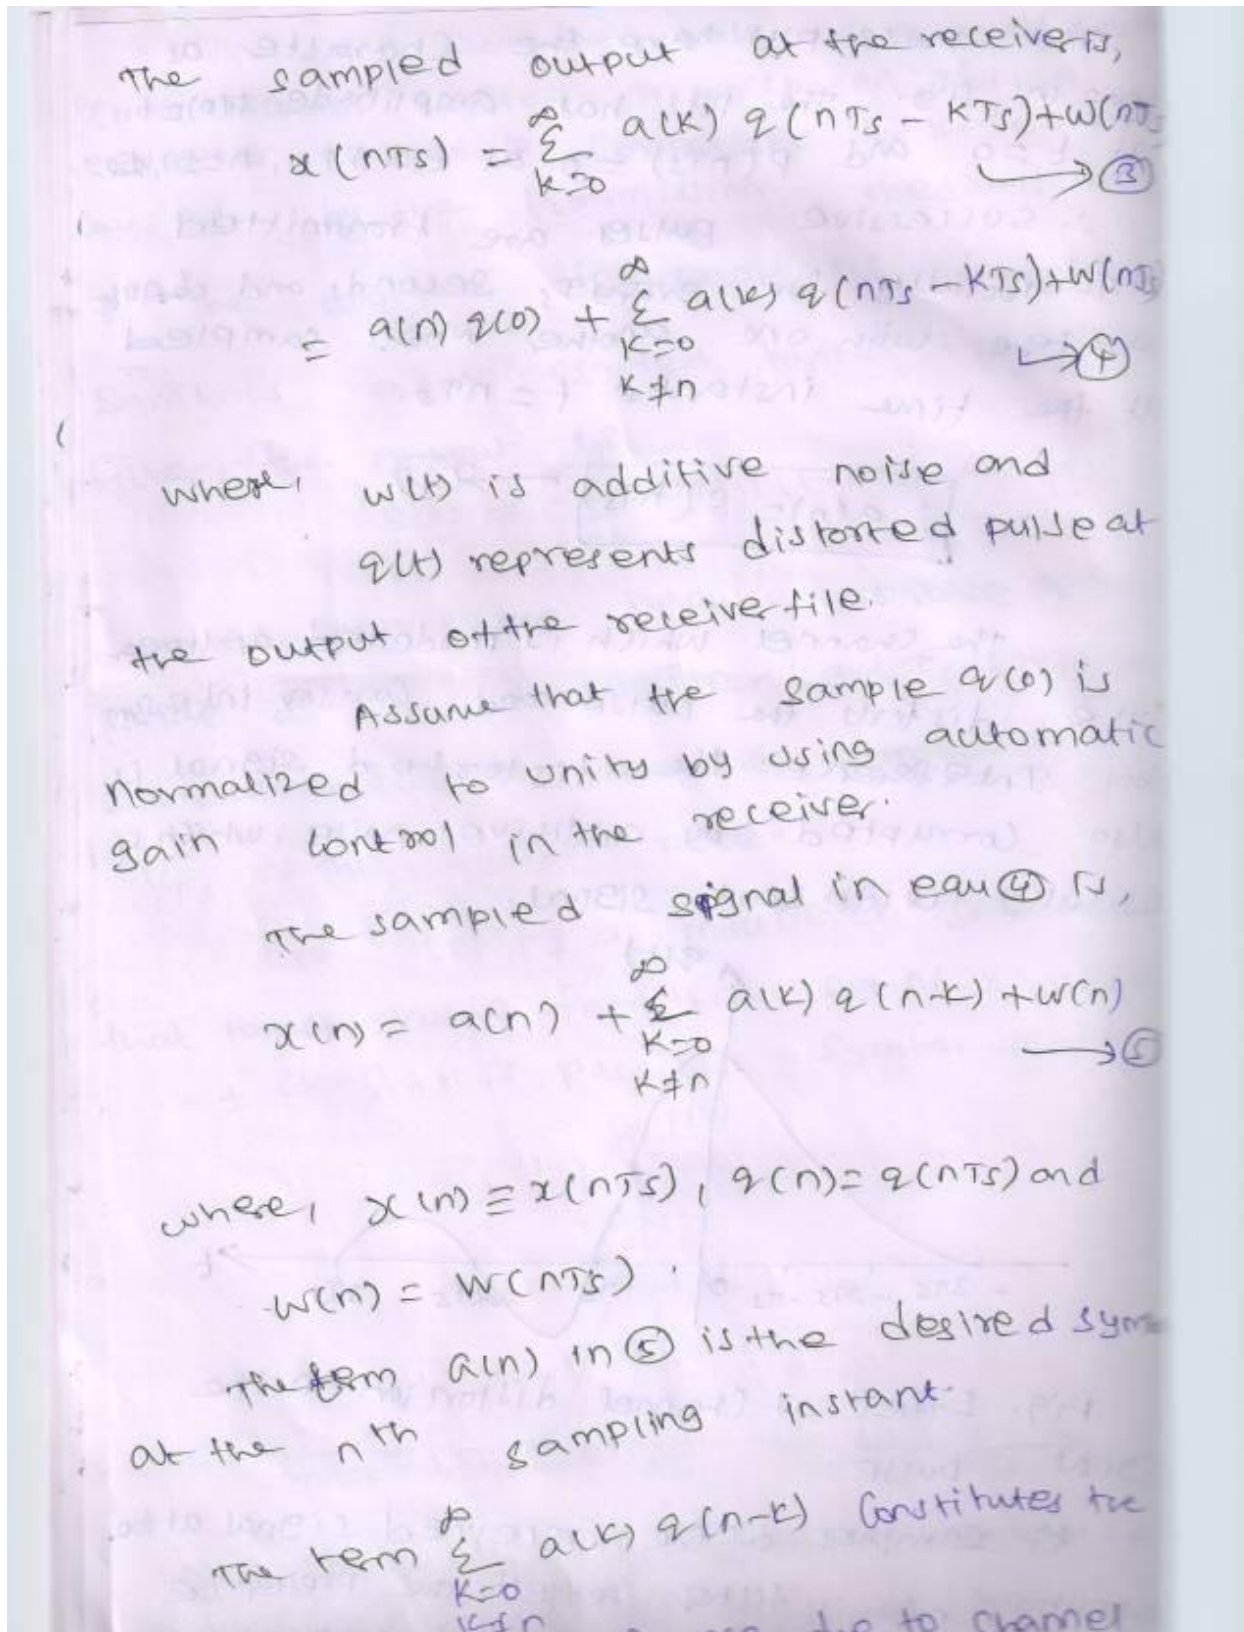 The sampled output at the receiver is,
x(nTs) = ∞ Σ k=0 a(k) q(nTs - KTs) + W(nTs → ③
= a(n) q(0) + ∞ Σ K=0 K≠n a(k) q(nTs - KTs) + W(nTs → ④
where, w(t) is additive noise and
q(t) represents distorted pulse at
the output of the receiver file.
Assume that the sample q(0) is
normalized to unity by using automatic
gain control in the receiver.
The sampled signal in equ ④ is,
x(n) = a(n) + ∞ Σ K=0 K≠n a(k) q(n-k) + w(n) → ⑤
where, x(n) ≡ x(nTs), q(n) = q(nTs) and
w(n) = W(nTs).
The term a(n) in ⑤ is the desired sym
at the nth sampling instant.
The term ∞ Σ K=0 K≠n a(k) q(n-k) Constitutes the
due to channel